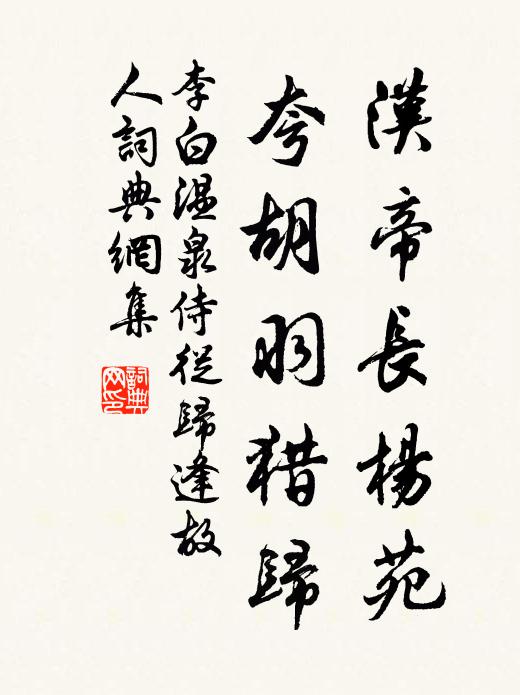 漢帝長楊苑
夸胡羽猎歸
李白温泉侍從歸逢故
人詞典網集
詞典
网印